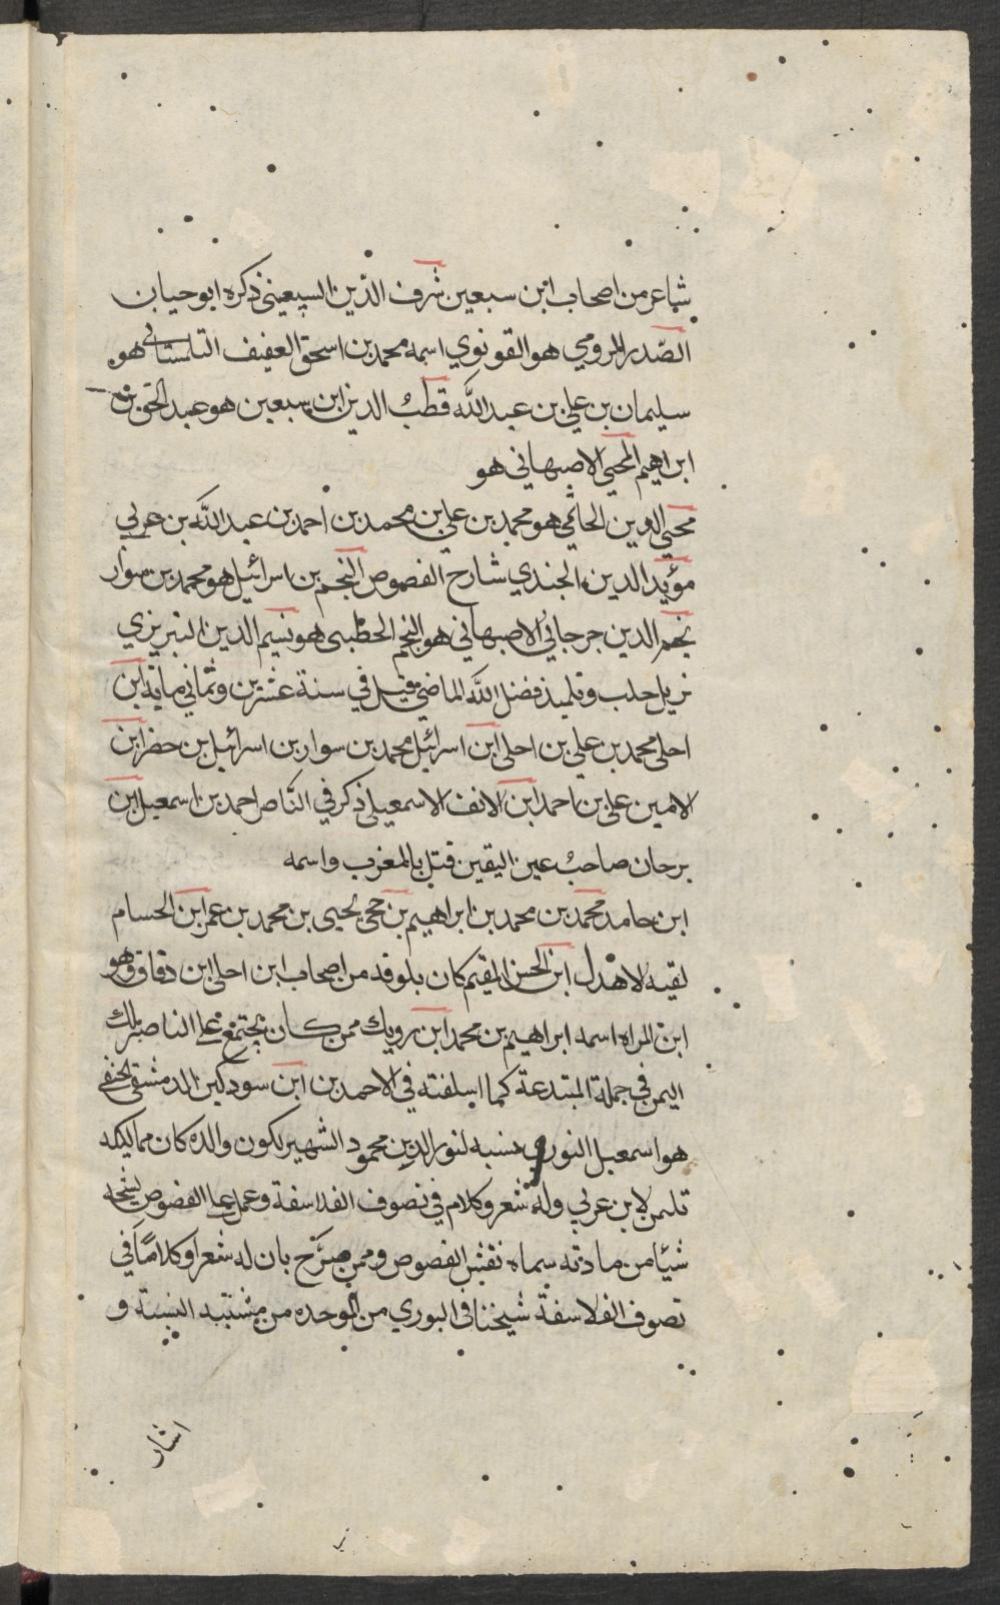 شاعر من اصحاب ابن سبعين شرف الدين السبعيني ذكره ابو حيان
الصدر الرومي هو القونوي اسمه محمد بن اسحق العفيف التلمساني هو
سليمان بن علي بن عبد الله قطب الدين ابن سبعين هو عبد الحق بن
ابراهيم المحيي الاصبهاني هو
محيي الدين الحاتمي هو محمد بن علي بن محمد بن احمد بن عبد الله بن عربي
مؤيد الدين الجندي شارح الفصوص النجم بن اسرائيل هو محمد بن سوار
نجم الدين جرجاني الاصبهاني هو النجم الحطبى هو نسيم الدين التبريزي
نزيل حلب وتلميذ فضل الله الماضي قتيل في سنة عشرين وثماني ماية ابن
احلى محمد بن علي بن احلى ابن اسرائيل محمد بن سوار بن اسرائيل بن حضر ابن
الامين علي بن احمد ابن الانف الاسمعيلي ذكر في الناصر احمد بن اسمعيل ابن
برجان صاحب عين اليقين قتل بالمغرب واسمه
ابن حامد محمد بن محمد بن ابراهيم بن حجى يحيى بن محمد بن عمر ابن الحسام
لقيه الاهدل ابن الحسن المقيم كان بلوقه من اصحاب ابن احلى ابن دقاق وهو
ابن المراه اسمه ابراهيم بن محمد ابن رويك ممن كان يجتمع على الناصر ملك
اليمن في جملة المبتدعة كما اسلفته في الاحمد بن ابن سودكين الدمشقي الحنفي
هو اسمعيل النوري نسبه لنور الدين محمود الشهير لكون والده كان مماليكه
تلمن لابن عربي وله شعر وكلام في تصوف الفلاسفة وعمل على الفصوص لشيخه
شيأ من مادته سماه نقش الفصوص وممن صرح بان له شعرا وكلاما في
تصوف الفلاسفة شيخنا في البوري من الوحده من مشتبه النسبة و
اشار